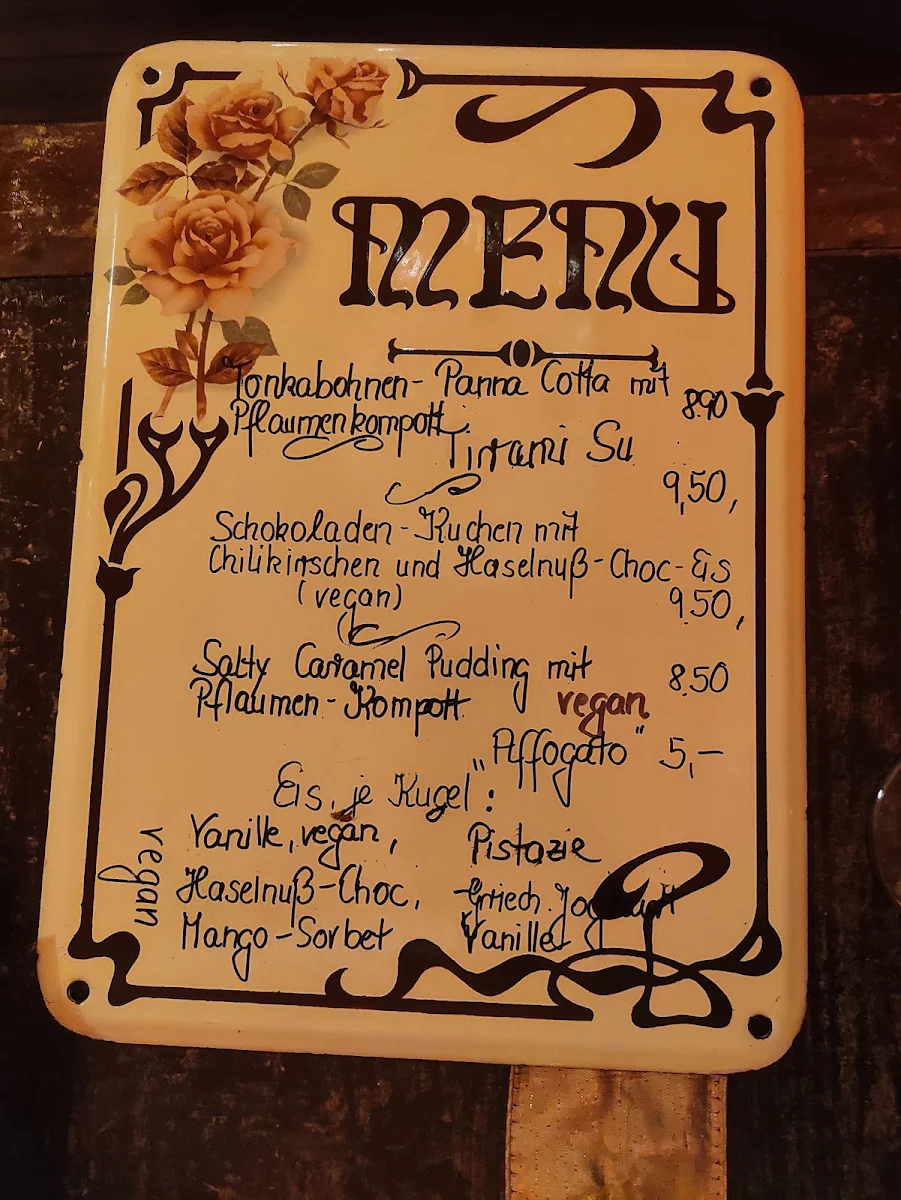 MENU
Tonkabohnen- Panna Cotta mit
Pflaumenkompott. 8.90
Tirami Su
9,50,
Schokoladen-Kuchen mit
Chilikirschen und Haselnuß-Choc-Eis
(vegan) 9.50,
Salty Caramel Pudding mit 8.50
Pflaumen-Kompott vegan
„Affogato" 5,-
Eis, je Kugel :
Vanille, vegan,
Haselnuß-Choc,
Mango-Sorbet
vegan
Pistazie
Griech. Joghurt
Vanille